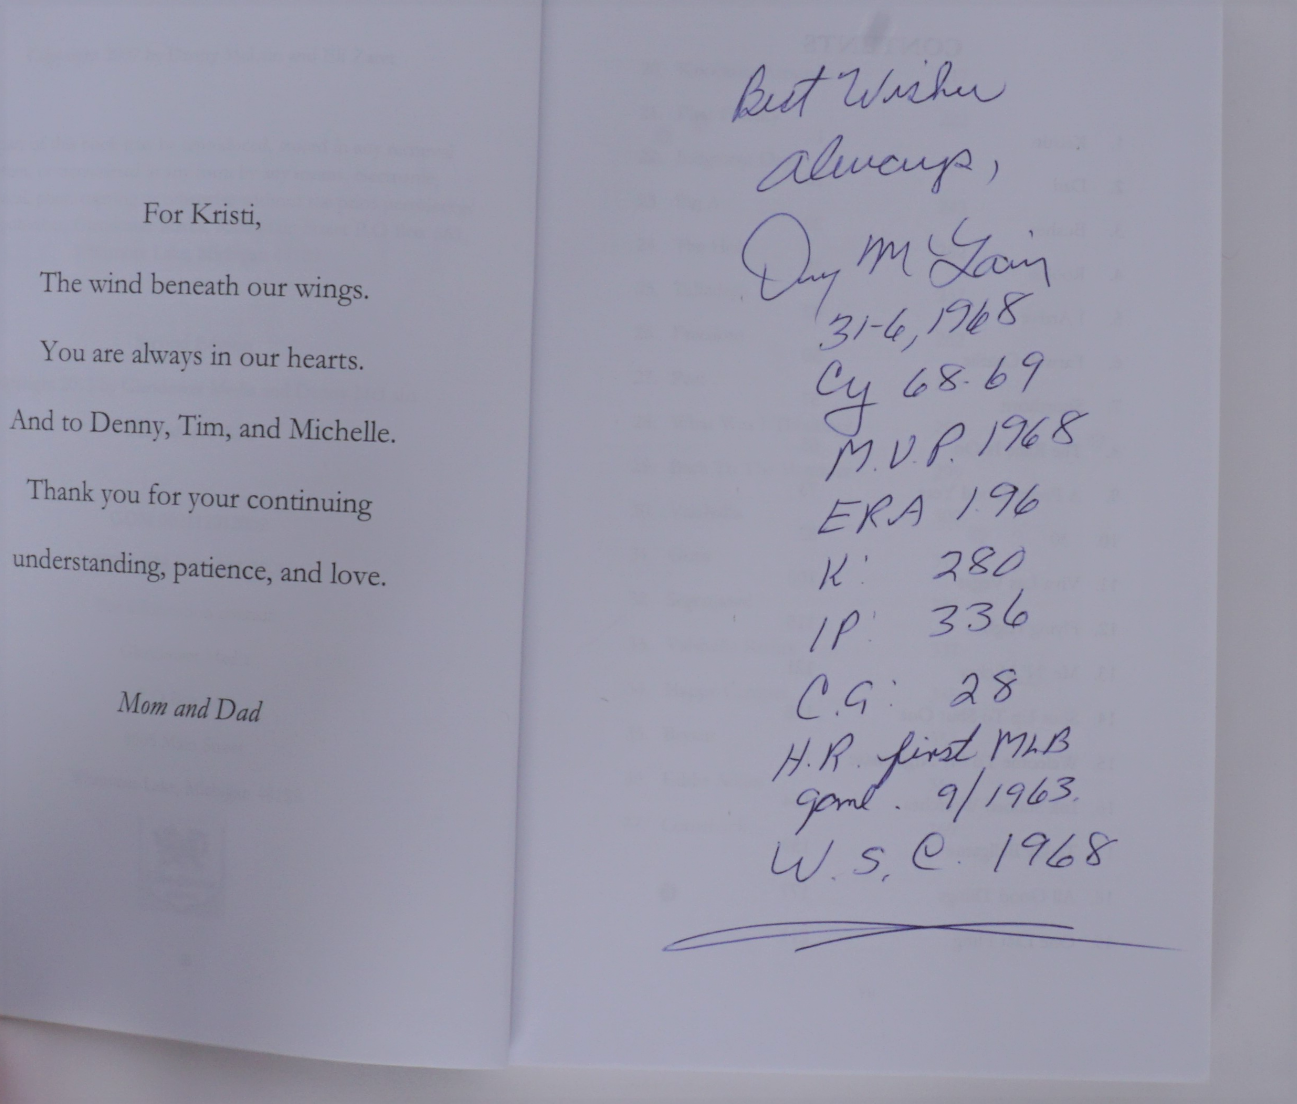 For Kristi,
The wind beneath our wings.
You are always in our hearts.
And to Denny, Tim, and Michelle.
Thank you for your continuing
understanding, patience, and love.
Mom and Dad
Best Wishes
always,
Denny McLain
31-6, 1968
Cy 68-69
M.V.P. 1968
ERA 1.96
K: 280
IP: 336
C.G: 28
H.R. first MLB
game. 9/1963.
W.S.C. 1968